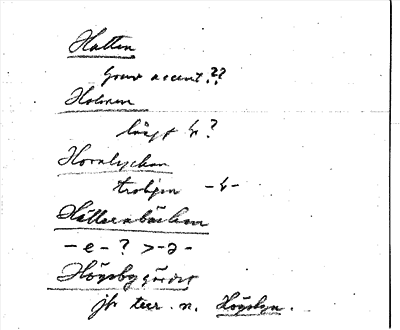 Hatten
grav accent??
Holmen
långt ?
Hornlyckan
troligen -"-
Källarebäcken
-e-? >-ə-
Högsbygärdet
jfr terr. n. Högsbyn.